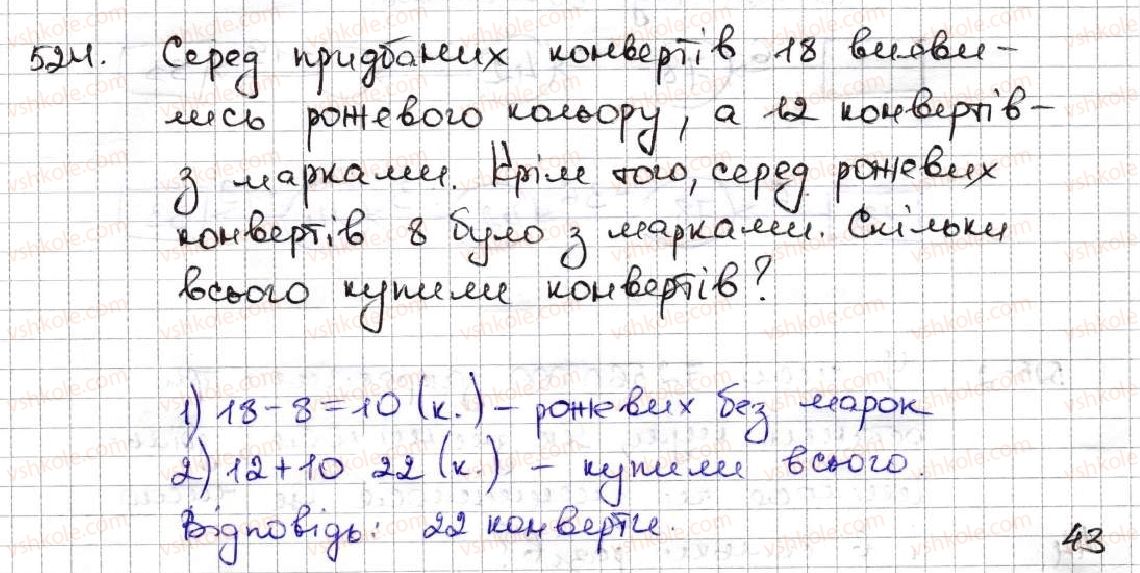 524. Серед придбаних конвертів 18 вияви-
лись рожевого кольору, а 12 конвертів -
з марками. Крім того, серед рожевих
конвертів 8 було з марками. Скільки
всього купили конвертів?
1) 18 - 8 = 10 (к.) - рожевих без марок
2) 12 + 10 22 (к.) - купили всього.
Відповідь: 22 конверти.
43